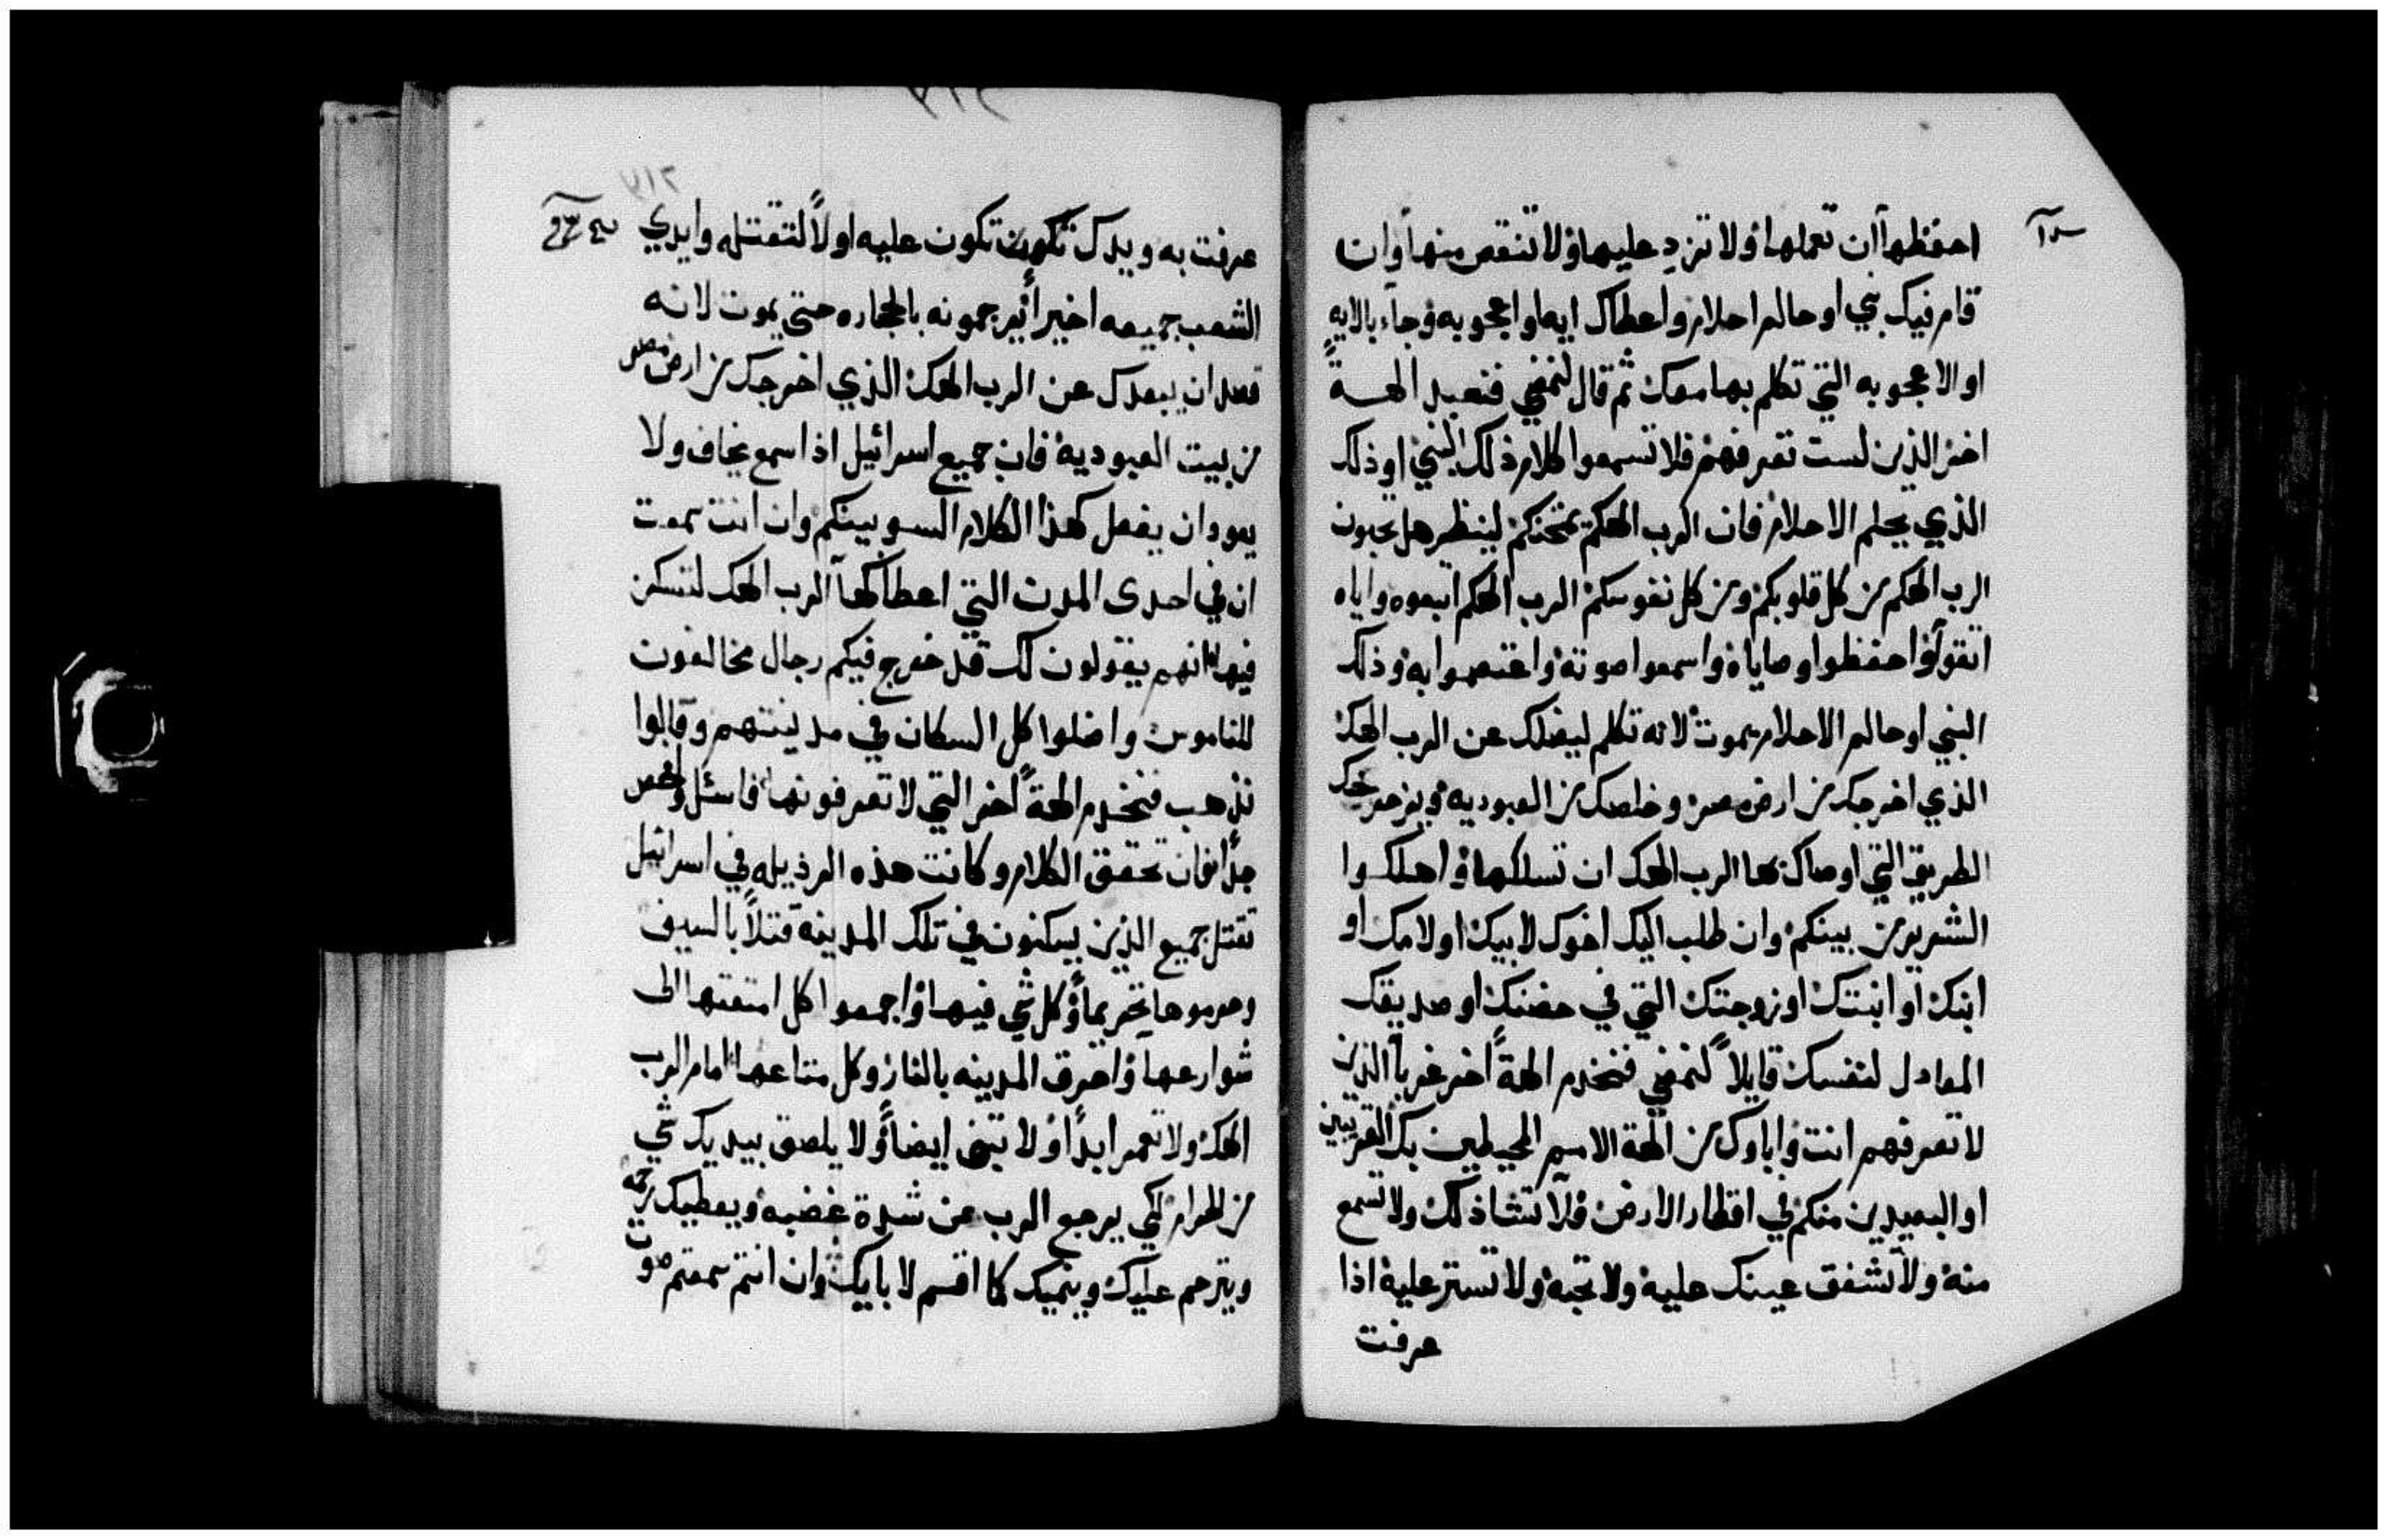 احفظها ان تعملها ولا تزد عليها ولا تنقص منها وان
قام فيك نبي او حالم احلام واعطاك ايه او اعجوبه وجاء بالايه
او الاعجوبه التي تكلم بها معك ثم قال لنمضي فنعبد الهةً
اخر الذين لست تعرفهم فلا تسمعوا كلام ذلك النبي او ذلك
الذي يحلم الاحلام فان الرب الهكم يمتحنكم لينظر هل تحبون
الرب الهكم من كل قلوبكم ومن كل نفوسكم الرب الهكم اتبعوه واياه
اتقوا واحفظوا وصاياه واسمعوا صوته واعتصموا به وذلك
النبي او حالم الاحلام يموت لانه تكلم ليضلك عن الرب الهك
الذي اخرجك من ارض مصر وخلصك من العبوديه ويزحزحك
الطريق التي اوصاك بها الرب الهك ان تسلكها واهلكوا
الشرير من بينكم وان طلب اليك اخوك لابيك او لامك او
ابنك او ابنتك او زوجتك التي في حضنك او صديقك
المعادل لنفسك قايلاً لنمضي فنخدم الهةً اخر غرباً الذين
لا تعرفهم انت واباوك من الهة الامم المحيطين بك القريبين
او البعيدين منكم في اقطار الارض فلا تشا ذلك ولا تسمع
منه ولا تشفق عينك عليه ولا تحبه ولا تستر عليه اذا
عرفت
٢١٧
عرفت به ويدك تكون تكون عليه اولاً لتقتله وايدي
الشعب جميعه اخيراً يرجمونه بالحجاره حتى يموت لانه
قصد ان يبعدك عن الرب الهك الذي اخرجك من ارض مصر
من بيت العبودية فان جميع اسرائيل اذا سمع يخاف ولا
يعود ان يفعل كهذا الكلام السو بينكم وان انت سمعت
ان في احدى المدن التي اعطاكها الرب الهك لتسكن
فيها انهم يقولون لك قد خرج فيكم رجال مخالفون
للناموس واضلوا كل السكان في مدينتهم وقالوا
نذهب فنخدم الهةً اخر التي لا تعرفونها فاسئل وافحص
جداً فان تحقق الكلام وكانت هذه الرذيله في اسرائيل
تقتل جميع الذين يسكنون في تلك المدينه قتلاً بالسيف
وحرموها تحريماً وكل شي فيها واجمعوا كل امتعتها الى
شوارعها واحرق المدينه بالنار وكل متاعها امام الرب
الهك ولا تعمر ابداً ولا تبنى ايضاً ولا يلصق بيديك شي
من الحرام لكي يرجع الرب عن شدة غضبه ويعطيك رحمه
ويترحم عليك وينميك كما اقسم لابايك وان انتم سمعتم صوت